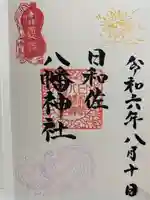 令和六年八月十日
日和佐
八幡神社